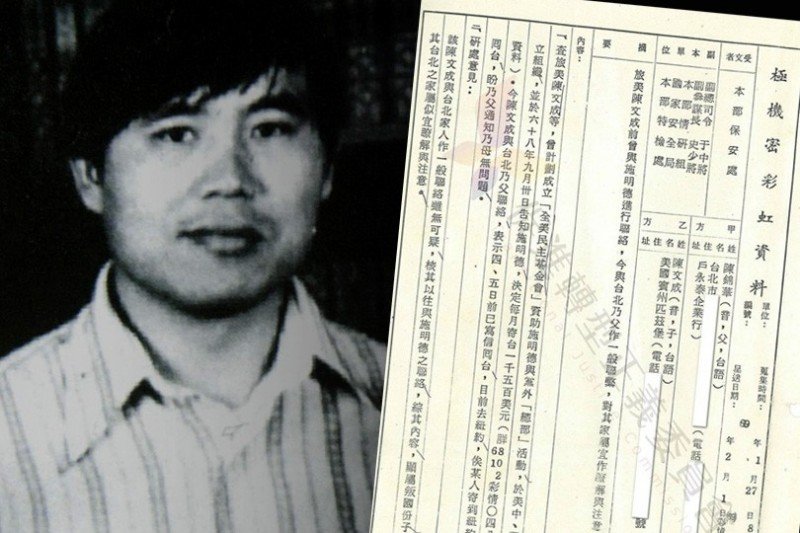 極機密彩虹資料
單位:
編號:
蒐集時間:69年1月27日8
呈送日期:69年2月1日
受文者
本部保安處
副本單位
副總司令 于中將
副參謀長 史少將
本部情研組
國家安全局
本部特檢處
甲方
姓名
陳錦華(音,父,台語)
住址
台北市
戶永泰企業行(電話
號
乙方
姓名
陳文成(音,子,台語)
住址
美國賓州匹茲堡(電話
摘要
旅美陳文成前曾與施明德進行聯絡,今與台北乃父作一般聯繫,對其家屬宜作瞭解與注意
內容:
一、查旅美陳文成等,曾計劃成立「全美民主基金會」資助施明德與黨外「總部」活動,於美中、
立組織,並於六十八年九月卅日告知施明德,決定每月寄台一千五百美元(詳6802彩情〇四
資料)。今陳文成與台北乃父聯絡,表示四、五日前已寫信囘台,目前去紐約,俟某人寄到紐約
囘台,盼乃父通知乃母無問題。
二、研處意見:
該陳文成與台北家人作一般聯絡雖無可疑,核其以往與施明德之聯絡,綜其內容,顯屬叛國份子
其台北之家屬似宜瞭解與注意。
進轉型正義委員